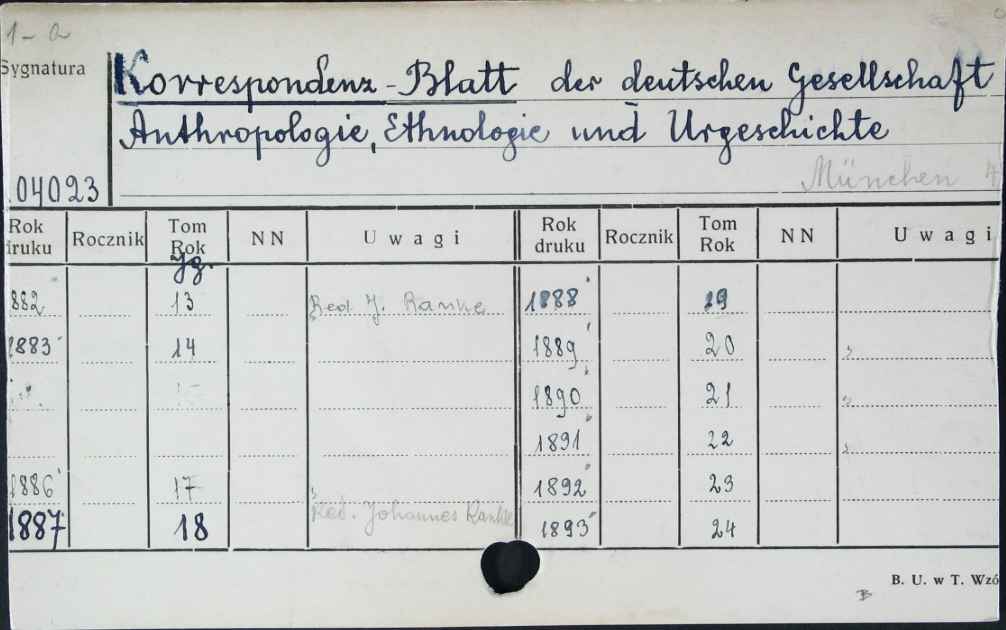 1-a
Sygnatura
Korrespondenz-Blatt der deutschen Gesellschaft
Anthropologie, Ethnologie und Urgeschichte
04023
München
Rok druku Rocznik Tom Rok NN Uwagi Rok druku Rocznik Tom Rok NN Uwagi
Jg.
882 13 Red J. Ranke 1888 19
1883 14 1889 20
1890 21
1891 22
1886 17 1892 23
1887 18 Red. Johannes Ranke 1893 24
B. U. w T. Wzó
B